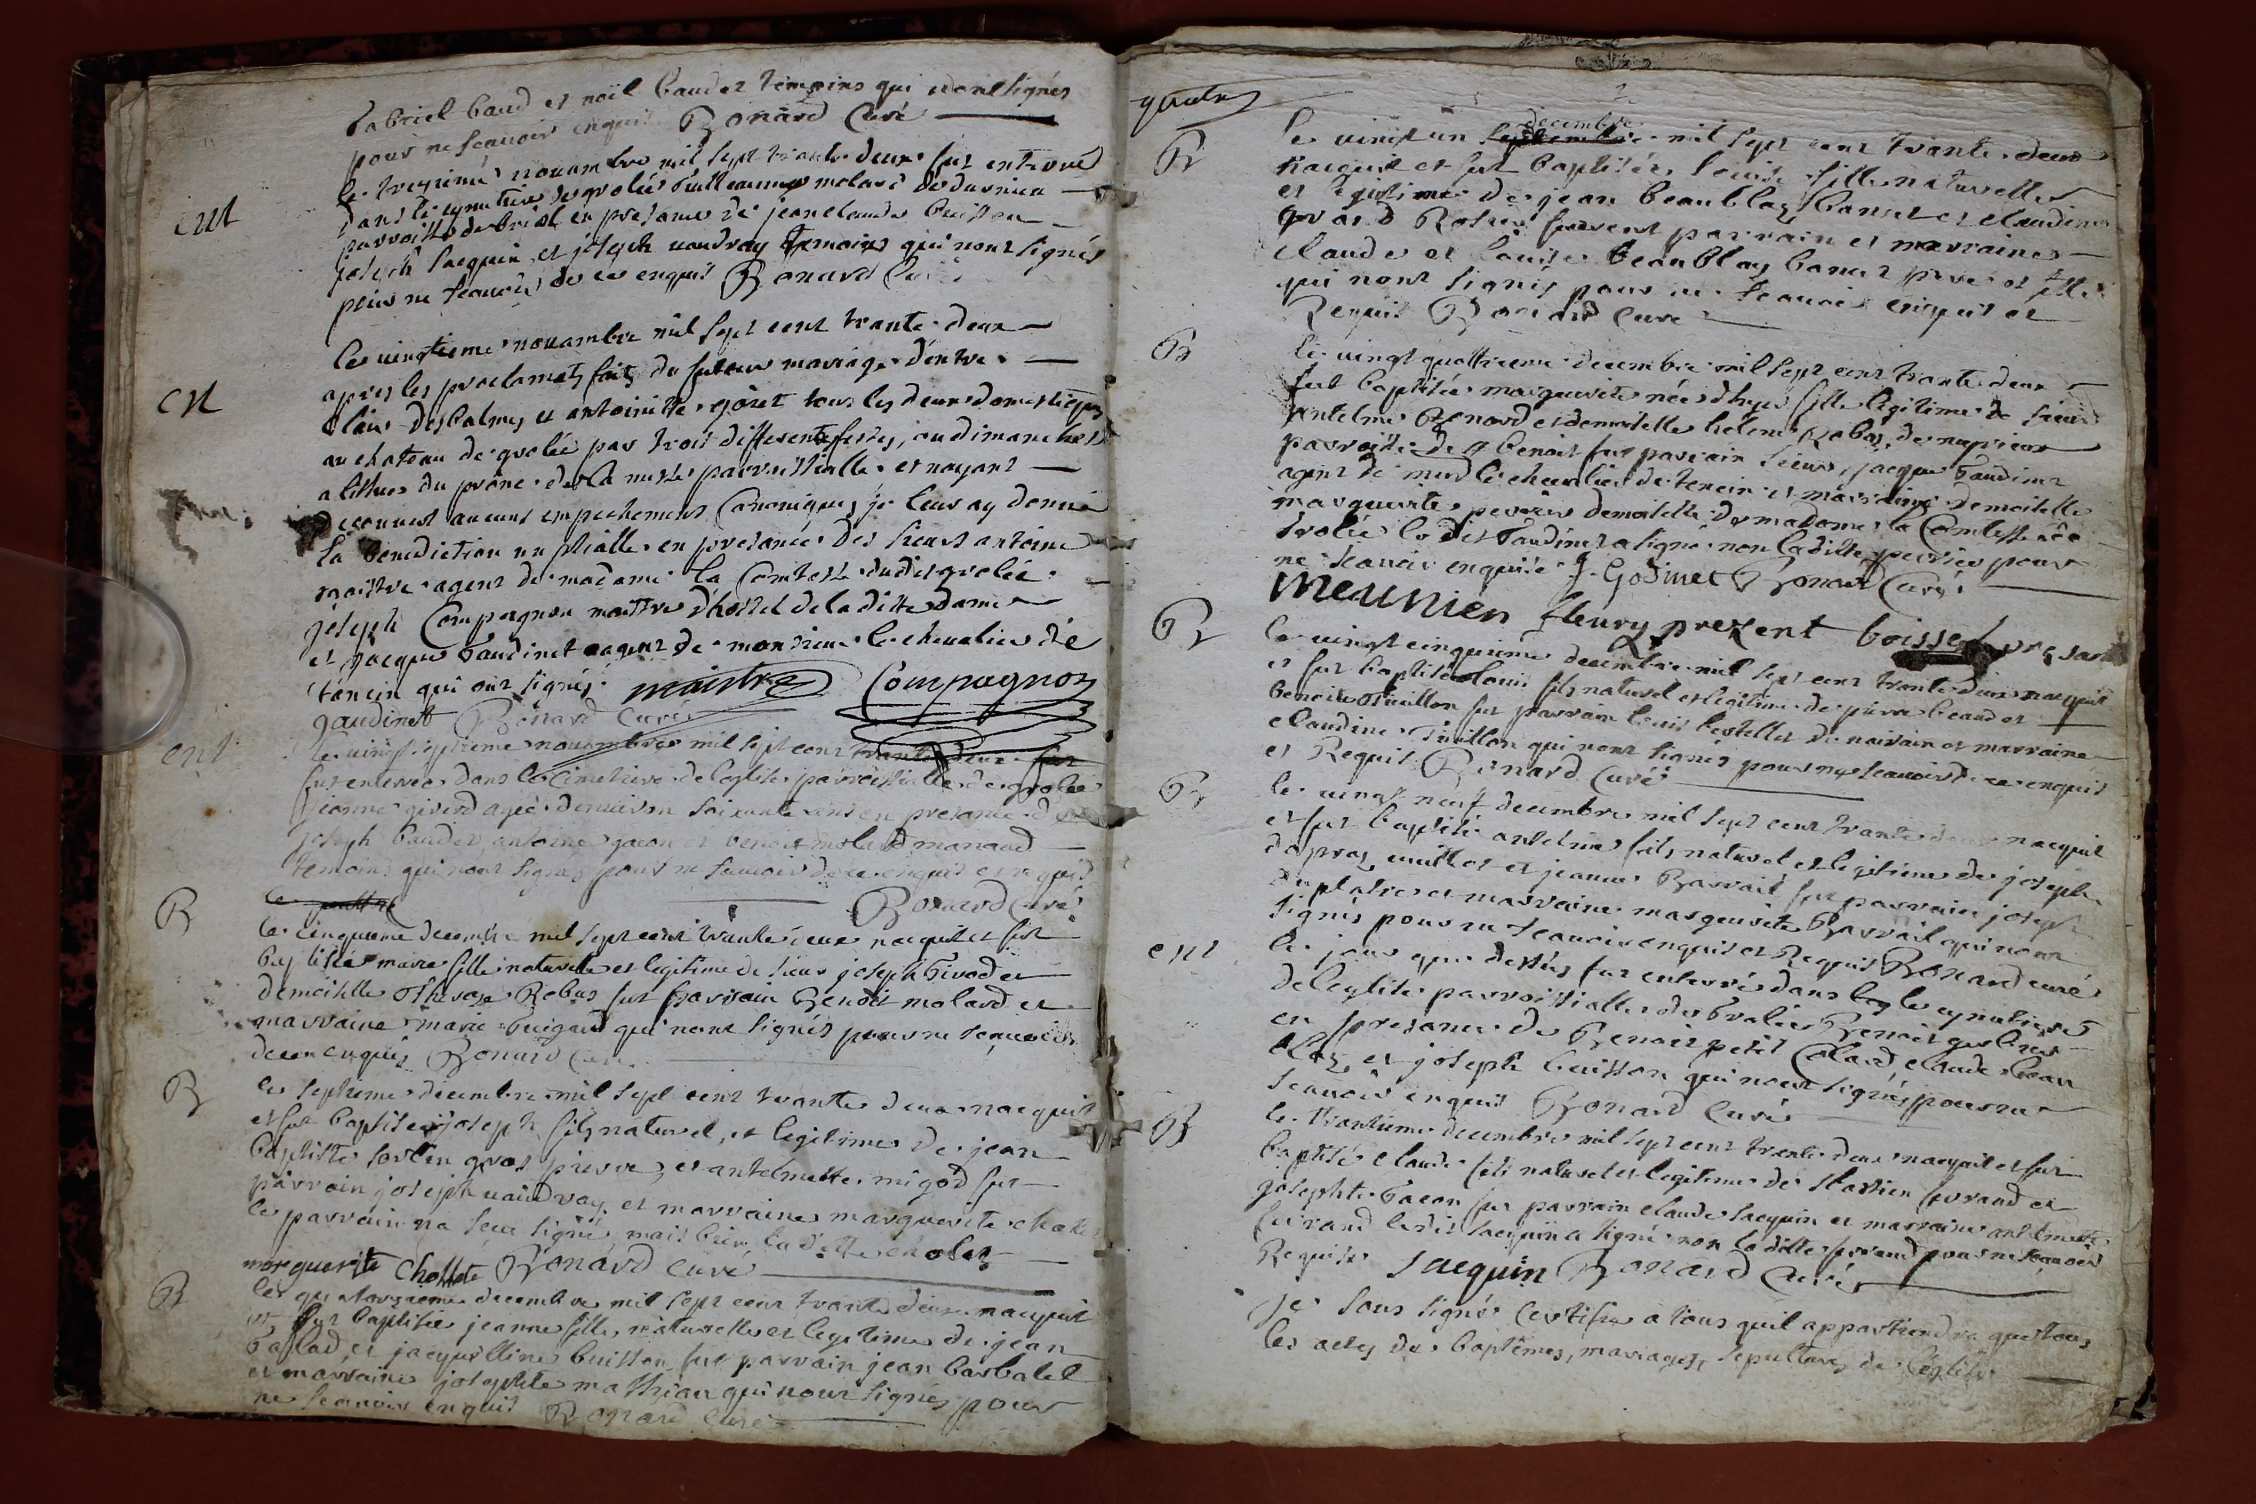 Gabriel baud et noël baudet temoins qui n'ont signés
pour ne scauoir enquis Bonard Curé
ent
le treizieme nouambre mil sept trante deux fut enterré
dans le cymetiere de grolée Guilleaume molard
parroisse de en presance de jean claude buisson
joseph Jacquin et joseph uaudray temoins qui n'ont signés
pour ne scauoir de ce enquis Bonard Curé
ent
le uingtieme nouambre mil sept cent trante deux
apres les proclamats faits du futeur mariage d'entre
claire desbalmes et antoinette goret tous les deux domestiques
au chateau de grolée par trois differentes festes, ou dimanches
a l'issue du prône de la messe parroissialle et n'ayant
decouuert aucuns empechement Canoniques je leur ay donné
la benediction nuptialle en presance des sieurs antoine
maistre agent de madame la Comtesse dudit grolée
joseph Compagnon maitre d'hostel de la ditte dame
et jacque Gaudinet agent de monsieur le cheualier de
tancin qui ont signés. maistre Compagnon
gaudinet Bonard Curé
ent
le uingt septieme nouambre mil sept cent trante deux fut
fut enterrée dans le Cimetiere de l'eglise parroissialle de grolée
jeanne girerd agée d'enuiron soixante ans en presance de
joseph baudet, antoine gacon et benoit molard manaud
temoins qui n'ont signés pour ne scauoir de ce enquis et requis
Bonard Curé
B
le quattre
le cinquieme decembre mil sept cent trante deux nacquit et fut
baptisée marie fille naturelle et legitime de sieur joseph Girod et
demoiselle Therese Robas fut parrain Benoit molard et
marraine marie Guigard qui n'ont signés pour ne scauoir
de ce enquis Bonard Curé
B
le septieme decembre mil sept cent trante deux nacquit
et fut baptisé joseph fils naturel, et legitime de jean
baptiste sorlin gros pierre, et antelmette migod fut
parrain joseph uaudray et marraine marguerite cholet
le parrain na sceu signé mais bien la ditte cholet
marguerite Chollete Bonard curé
B
le quatorzieme decembre mil sept cent trante deux nacquit
et fut baptisée jeanne fille naturelle et legitime de jean
Gallad et jacquelline buisson fut parrain jean barbalet
et marraine josephte mathian qui n'ont signés pour
ne scauoir enquis Bonard Curé
quatre
B
le vint un septembre decembre mil sept cent trante deux
nacquit et fut baptisée louise fille naturelle
et legitime de jean beaublay banet et claudine
grand Rosset furent parrain et marraine
claude et louise beaublay banet pere et fille
qui n'ont signés pour ne scauoir enquis et
Requis Bonard Curé
B
le vingt quattrieme decembre mil sept cent trante deux
fut baptisée marguerite née d'hyer fille legitime de sieur
antelme Bonard et demoiselle helene Robas, de
parroisse de St benoit fut parrain sieur jacque Gaudinet
agent de monsr le cheualier de tencin et marraine demoiselle
marguerite perrier demoiselle de madame la Comtesse de
Grolée le dit Gaudinet a signé non la ditte perrier pour
ne scauoir enquise J. Godinet Bonard Curé
meunier fleury prezent boisset presant
B
le uingt cinquieme decembre mil sept cent trante deux nacquit
et fut baptisé louis fils naturel et legitime de pierre beaudet
benoite Guillon fut parrain louis et marraine
claudine Guillon qui n'ont signés pour ne scauoir de ce enquis
et Requis Bonard Curé
B
le uingt neuf decembre mil sept cent trante deux nacquit
et fut baptisé antelme fils naturel et legitime de joseph
dupraz et jeanne Barrail fut parrain joseph
duplatre et marraine marguerite Barrail qui n'ont
signés pour ne scauoir enquis et Requis Bonard curé
ent
le jour que dessus fut enterré dans le cymetiere
de l'eglise parroissialle de Grolée Benoit
en presance de Benoit petit Collard, claude beau
blay et joseph buisson qui n'ont signés pour ne
scauoir enquis Bonard Curé
B
le trantieme decembre mil sept cent trante deux nacquit et fut
baptisé claude fils naturel et legitime de Sbastien ferrand et
josephte Gacon fut parrain claude jacquin et marraine antelmette
ferrand ledit jacquin a signé non la ditte ferrand pour ne scauoir
Requise Jacquin Bonard Curé
Je sous signé Certifie a tous quil appartiendra que tous
les actes de baptêmes, mariages, sepultures de l'eglise